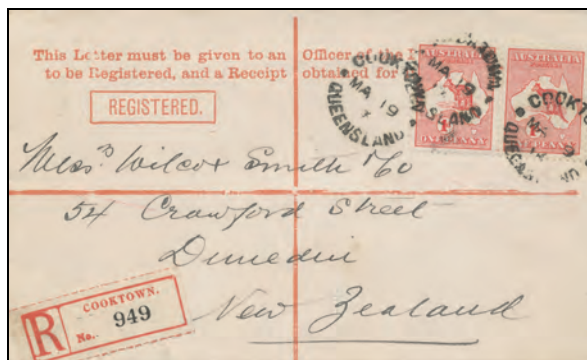 This Letter must be given to an Officer of the
to be Registered, and a Receipt obtained for
REGISTERED.
AUSTRALIA
ONE PENNY
AUSTRALIA
ONE PENNY
COOKTOWN
MA 19
QUEENSLAND
Messrs Wilcox Smith & Co
54 Crawford Street
Dunedin
New Zealand
R
COOKTOWN.
No. 949